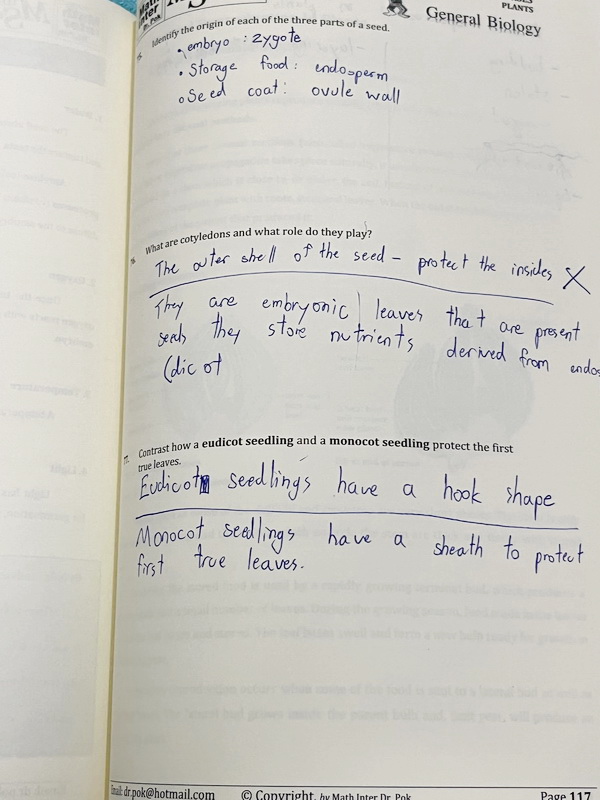 Math
Inter
Dr. Pok
PLANTS
General Biology
Identify the origin of each of the three parts of a seed.
• embryo : zygote
• Storage food : endosperm
• Seed coat : ovule wall
What are cotyledons and what role do they play?
The outer shell of the seed – protect the insides X
They are embryonic leaves that are present
seeds they store nutrients derived from endos
(dicot
77. Contrast how a eudicot seedling and a monocot seedling protect the first
true leaves.
Eudicot seedlings have a hook shape
Monocot seedlings have a sheath to protect
first true leaves.
Email: dr.pok@hotmail.com © Copyright, by Math Inter Dr. Pok Page 117